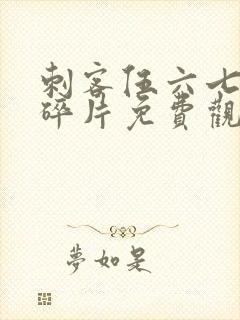 刺客伍六七
碎片免費觀
夢如是